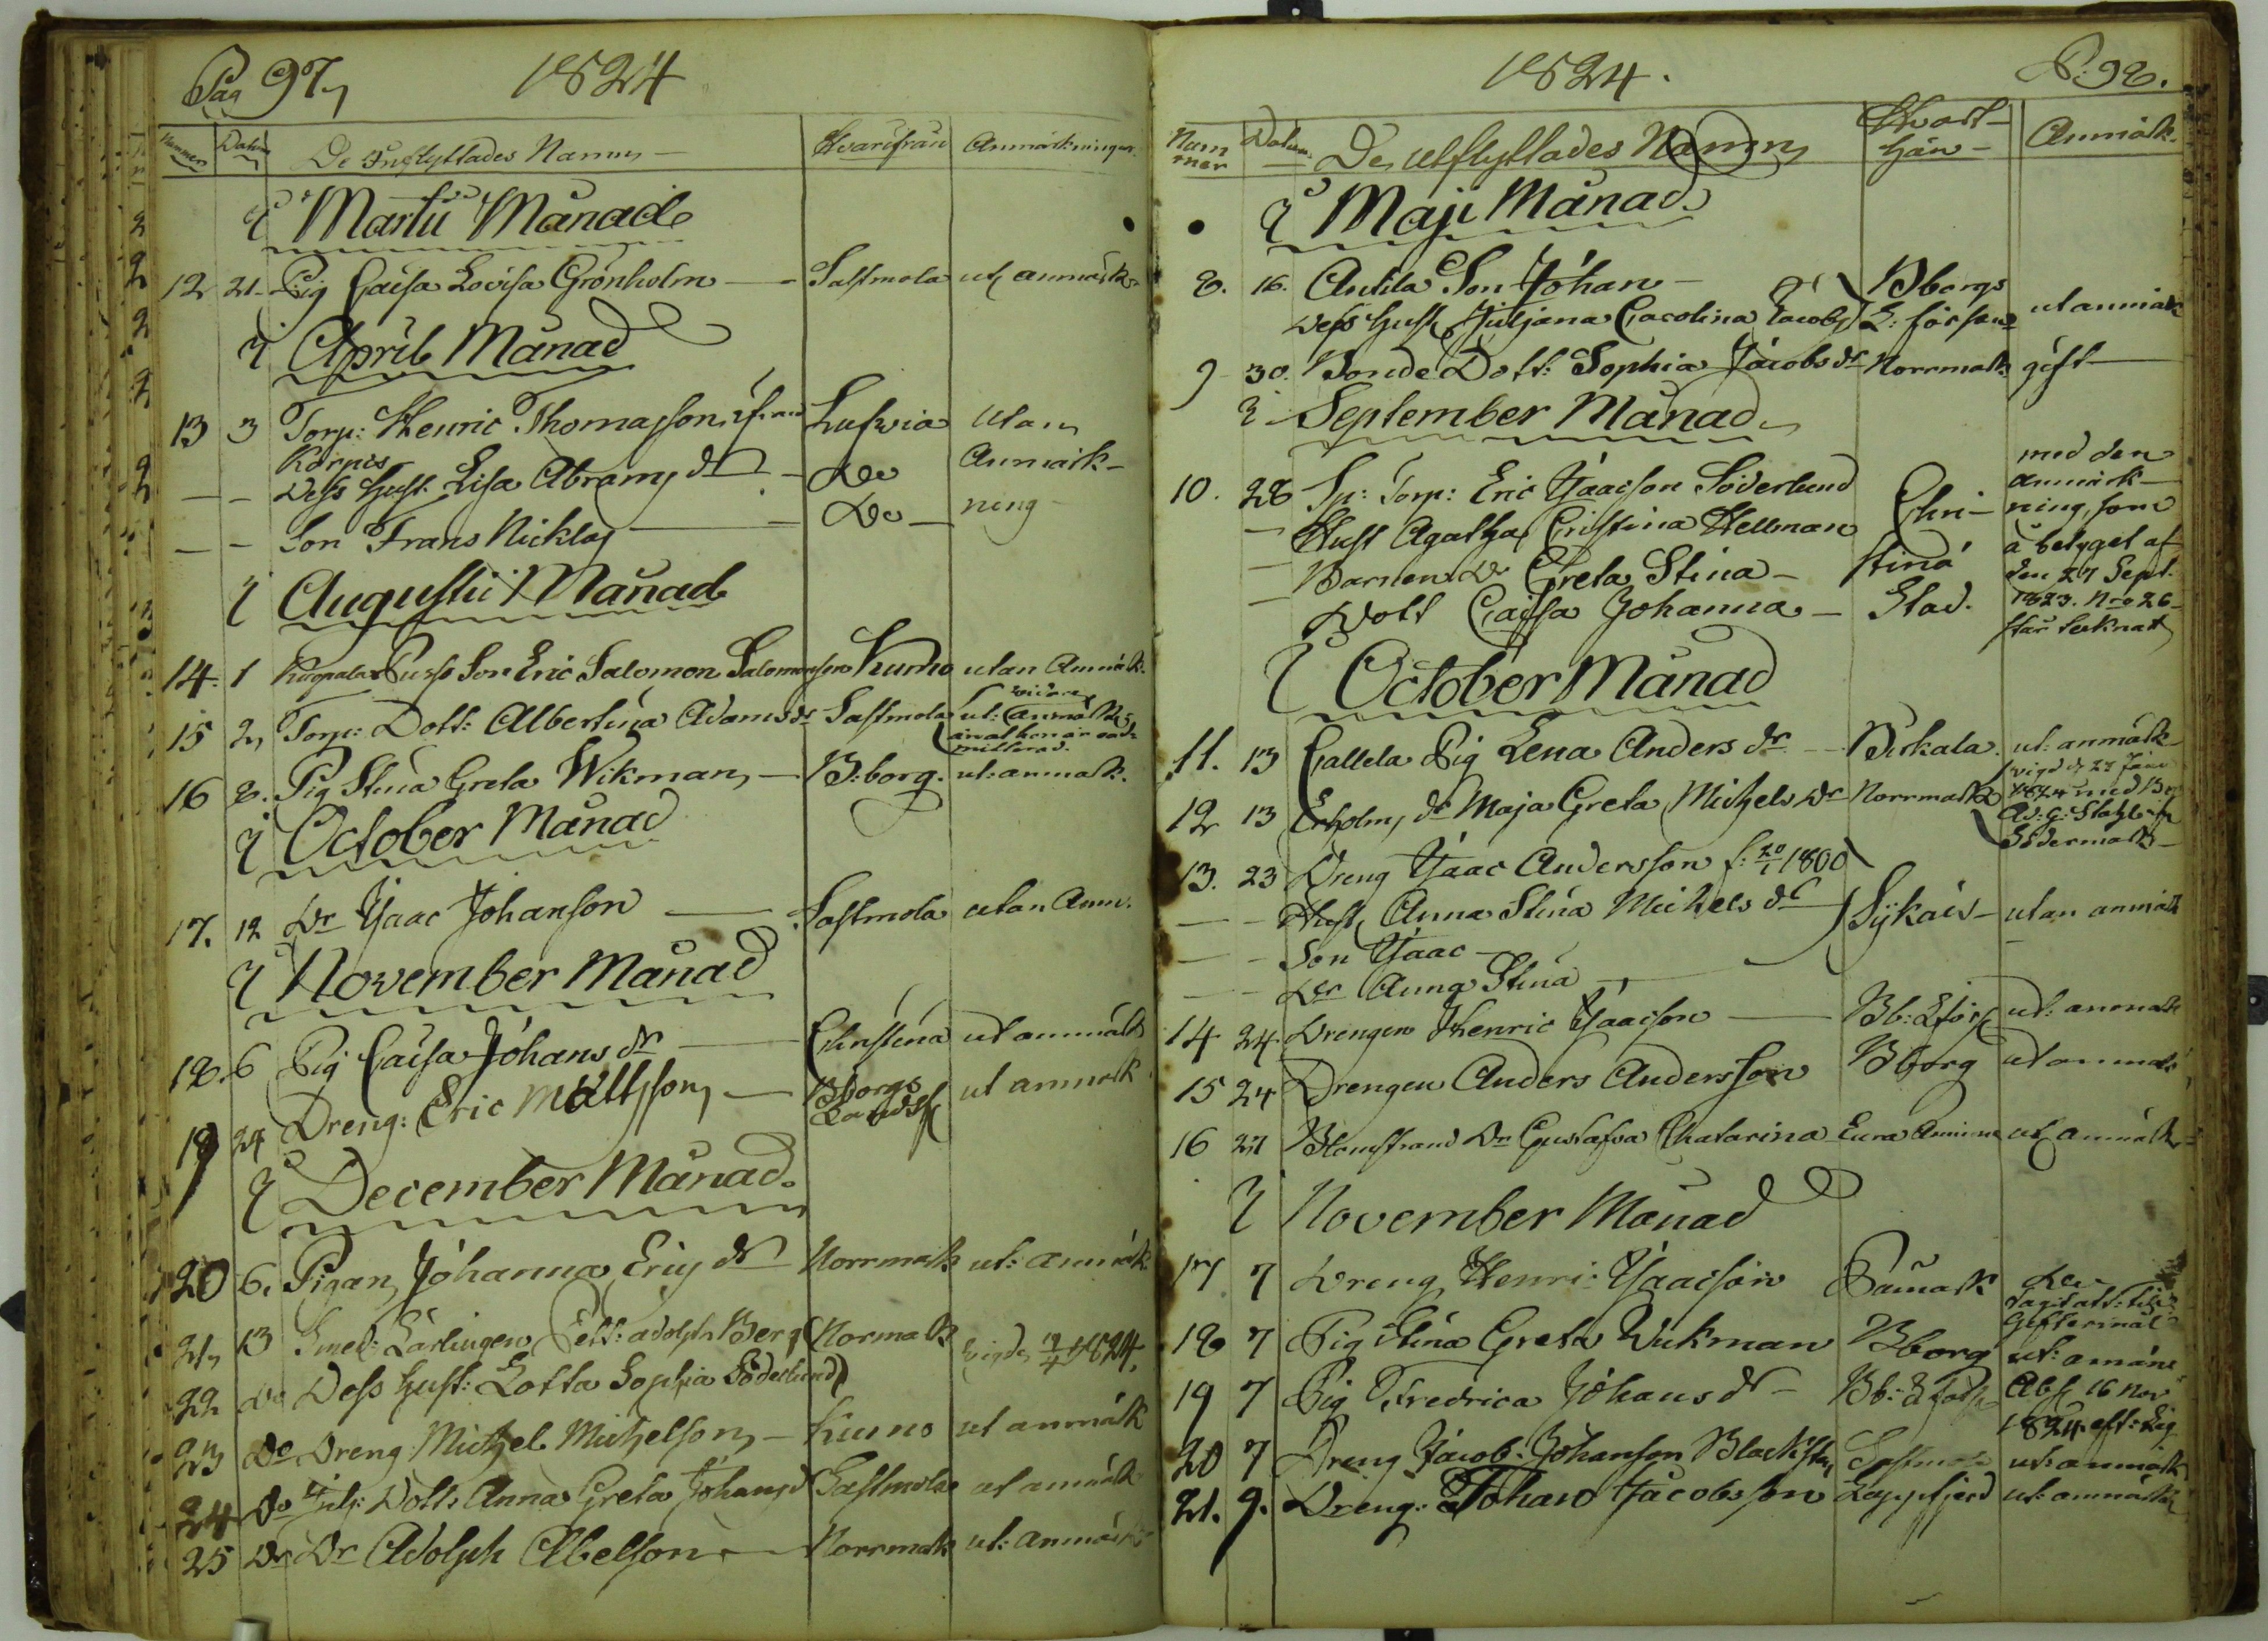 Pag 97,
1824
Nummer Datum De Inflyttades Namn Hvarifrån Anmärkningar
I Martii Månad
12 21 Pig Caisa Lovisa Grönholm Sastmola ut anmärk
I April Månad
13 3 Torp: Henric Thomasson Lufvia Utan
Karpis
Dess Hust. Lisa Abrams dr Do Anmärk-
Son Frans Nicklas Do ning
I Augusti Månad
14. 1 Son Eric Salomon Salomonsson Kumo utan Anmärk.
15 2, Torp: Dott: Albertina Adams dr Sastmola ut: anmärk
än at hon är
mitterad.
16 8. Pig Stina Greta Wikman, B:borg. ut: anmärk.
I October Månad
17. 12 Dr Isaac Johanson Sastmola utan Anm.
I November Månad
18. 6 Pig Caisa Johans dr Christina ut anmärk
19 24 Dreng: Eric Mattsson, Bborgs Landsf ut anmärk
I December Månad.
20 6. Pigan Johanna Erics dr Norrmark ut: anmärk
21, 13 Smed: Lärlingen Adolph Berg Normark vigde 1824.
22 Do Dess Hust: Lotta Sophia Söderlund
23 Do Dreng Michel Michelson, Kumo ut anmärk
24 Do Dott: Anna Greta Johans d Sastmola ut anmärk
25 Do Dr Adolph Abelson Norrmark ut: anmärk
1824.
P: 98.
Nummer Datum De Utflyttades Namn Hvart-hän Anmärk.
I Maji Månad
8. 16. Antila Son Johan Bborgs
Dess Hust Juljana Carolina Jacobs L: förs ut anmärk
9 30. Bonde Dott: Sophia Jacobs dr Norrmark gift
I September Månad
10. 28 Sp: Torp: Eric Isaacson Söderlund
Hust Agatha Cristina Hellman Chri-
Barnen Dr Greta Stina stina
Dott Caisa Johanna Stad.
med den
anmärk-
ning, som
å betyget af
den 27 Sept.
1823. No 26
står tecknat
I October Månad
11. 13 Callela Pig Lena Anders dr Birkala. ut: anmärk
12 13 Erholm, dr Maja Greta Michels dr Norrmark
vigd
1824 med
Ad: G: Stahl
Södermark
13. 23 Dreng Isaac Andersson f: 20/1 1800
Hust Anna Stina Michels dr Sykäis utan anmärk
Son Isaac
Dr Anna Stina
14 24. Drengen Henric Isaacson Bb: Lförs ut: anmärk
15 24 Drengen Anders Andersson Bborg ut anmärk
16 27 Blomstrand Dr Gustafva Chatarina Eura ut anmärk
I November Månad
17 7 Dreng Henri: Isaacson Påmark
18 7 Pig Stina Greta Wikman Bborg ut:
19 7 Pig Fredrica Johans dr Bb: L förs Abs 16 Nov
1824.
20 7 Dreng Jacob: Johanson Sastmola ut: anmärk
21. 9. Dreng: Johan Jacobsson Lappfjerd ut: anmärk